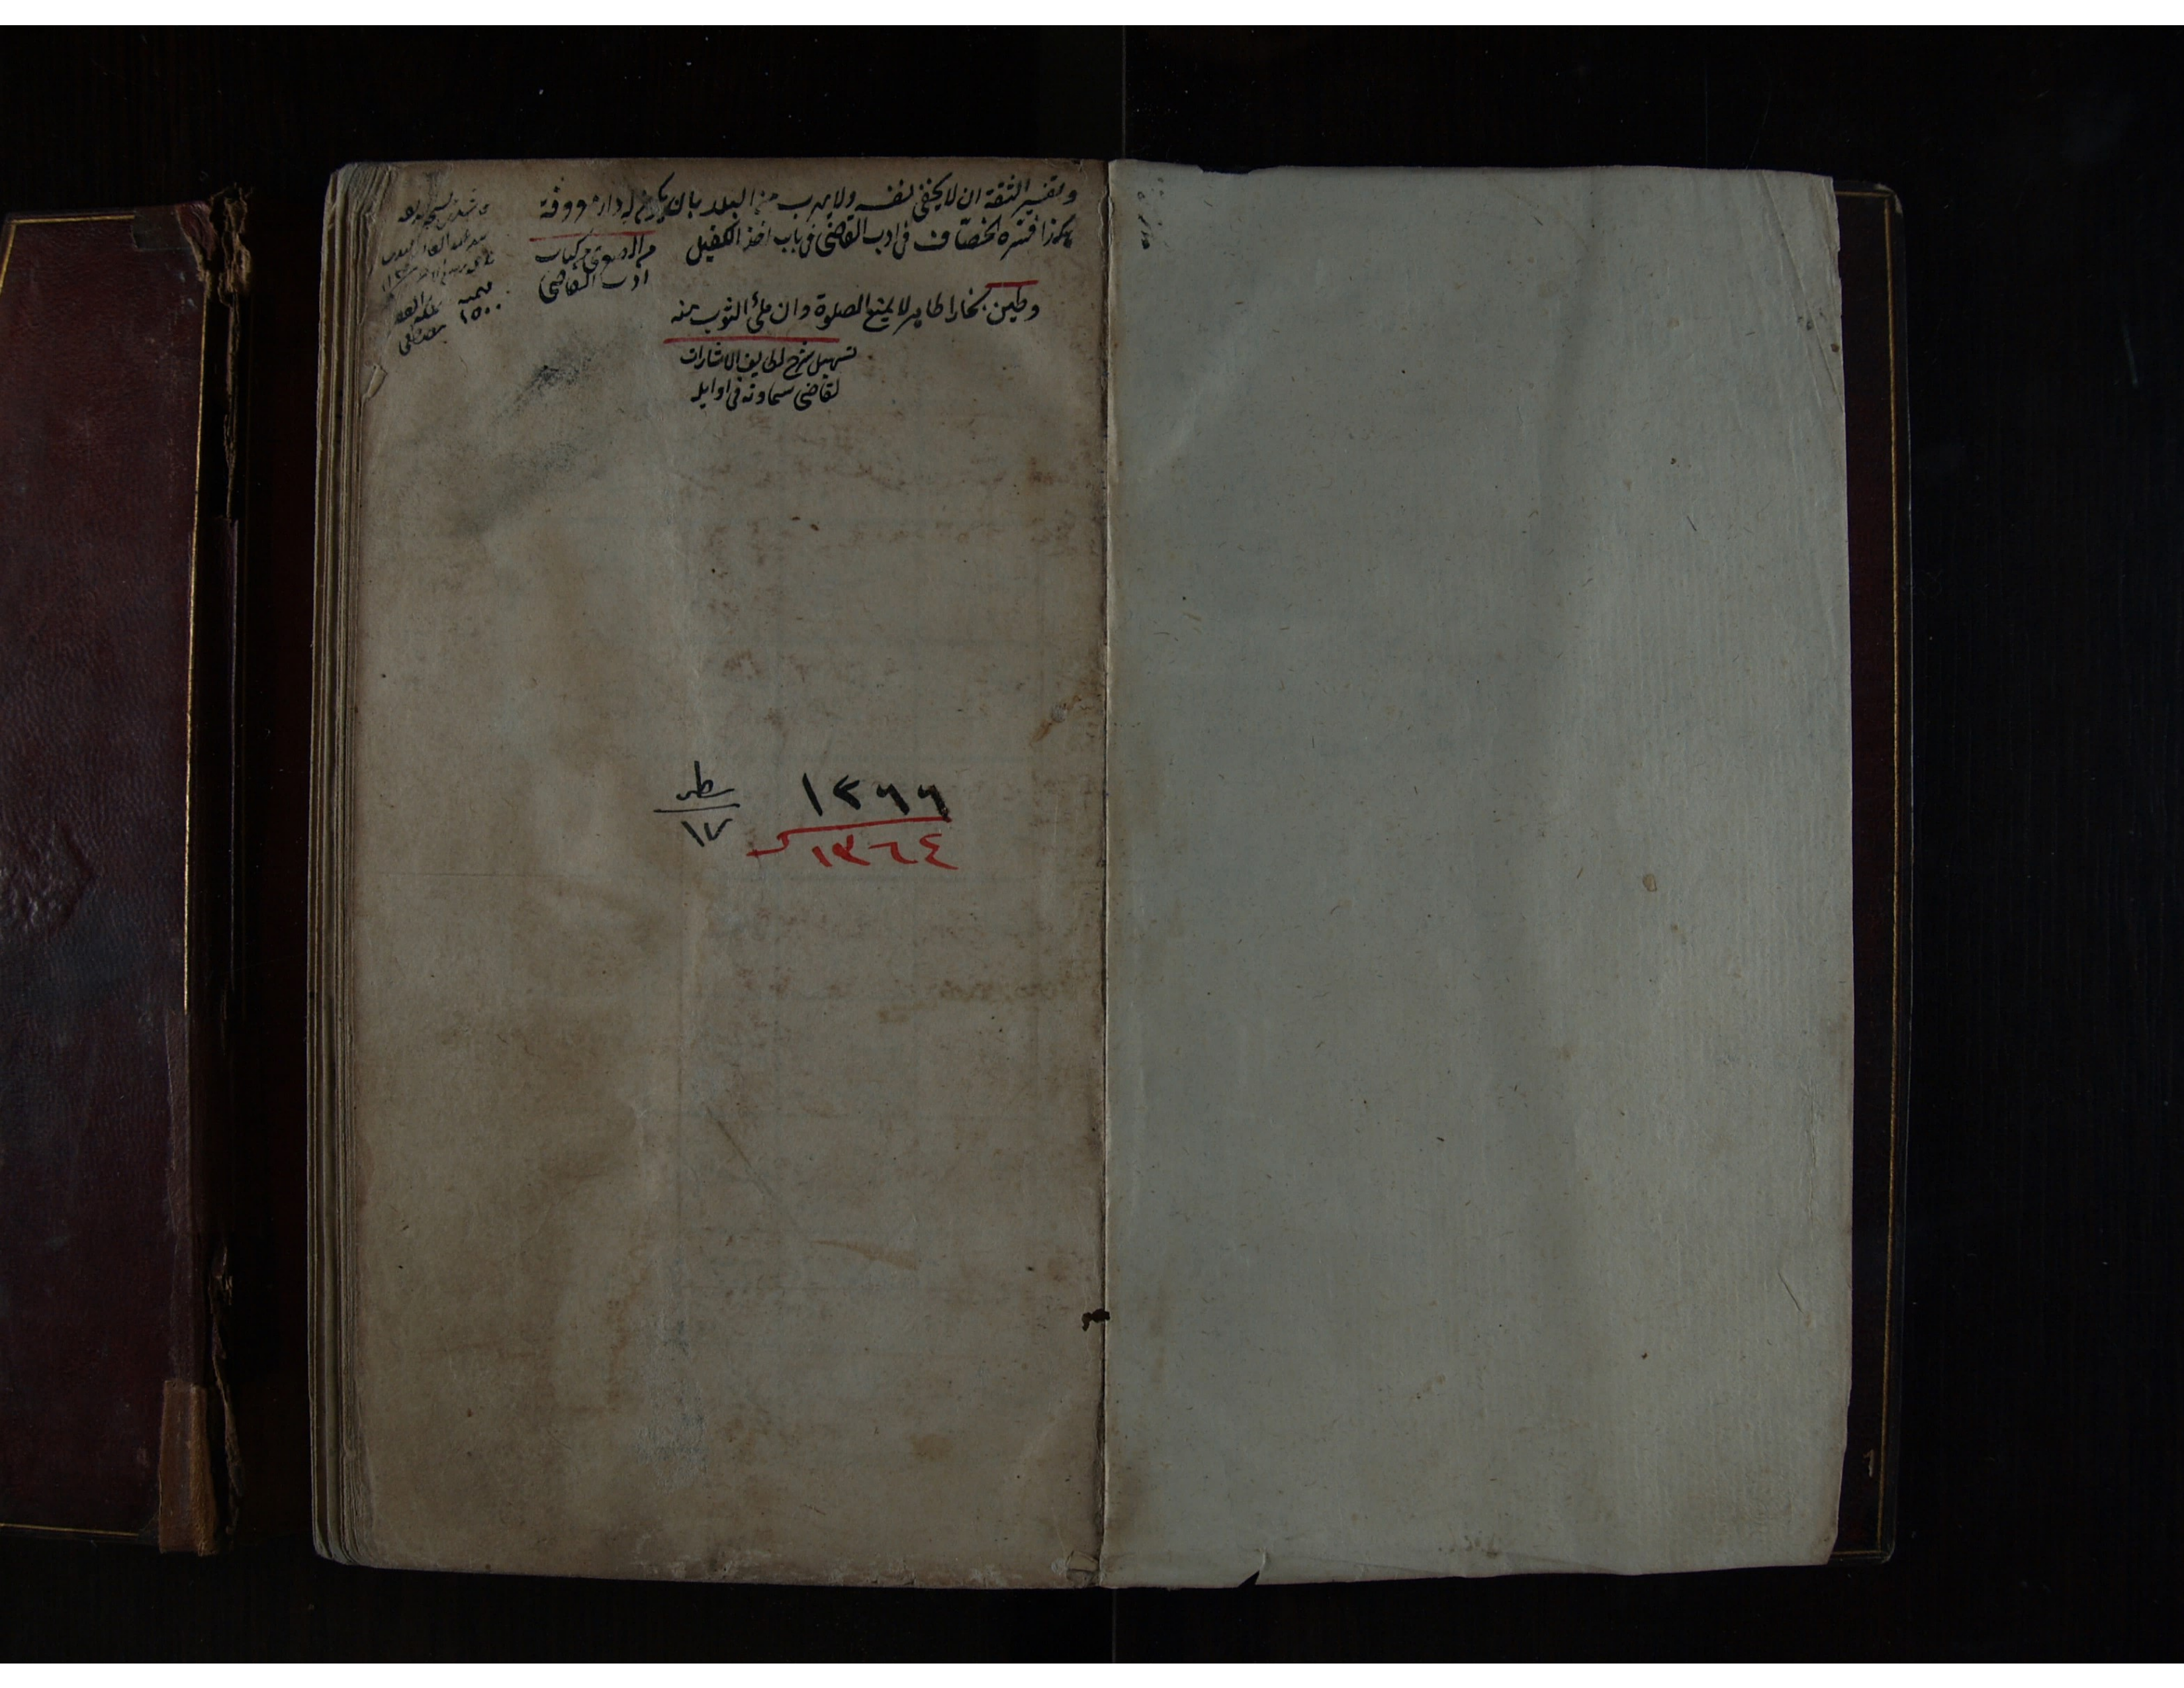 وتفسير الثقة ان لا يخفى نفسه ولا يهرب من البلد بان يكون له دار معروفة
هكذا فسّره الخصّاف فى ادب القاضى فى باب اخذ الكفيل
من كتاب
ادب القاضى
وطين بخارا طاهر لا يمنع الصلوة وان ملئ الثوب منه
تسهيل شرح لطايف الاشارات
لقاضى سماونه فى اوايله
١٥٠٠
١٣٦٦
١٣٦٤
سطر
١٧